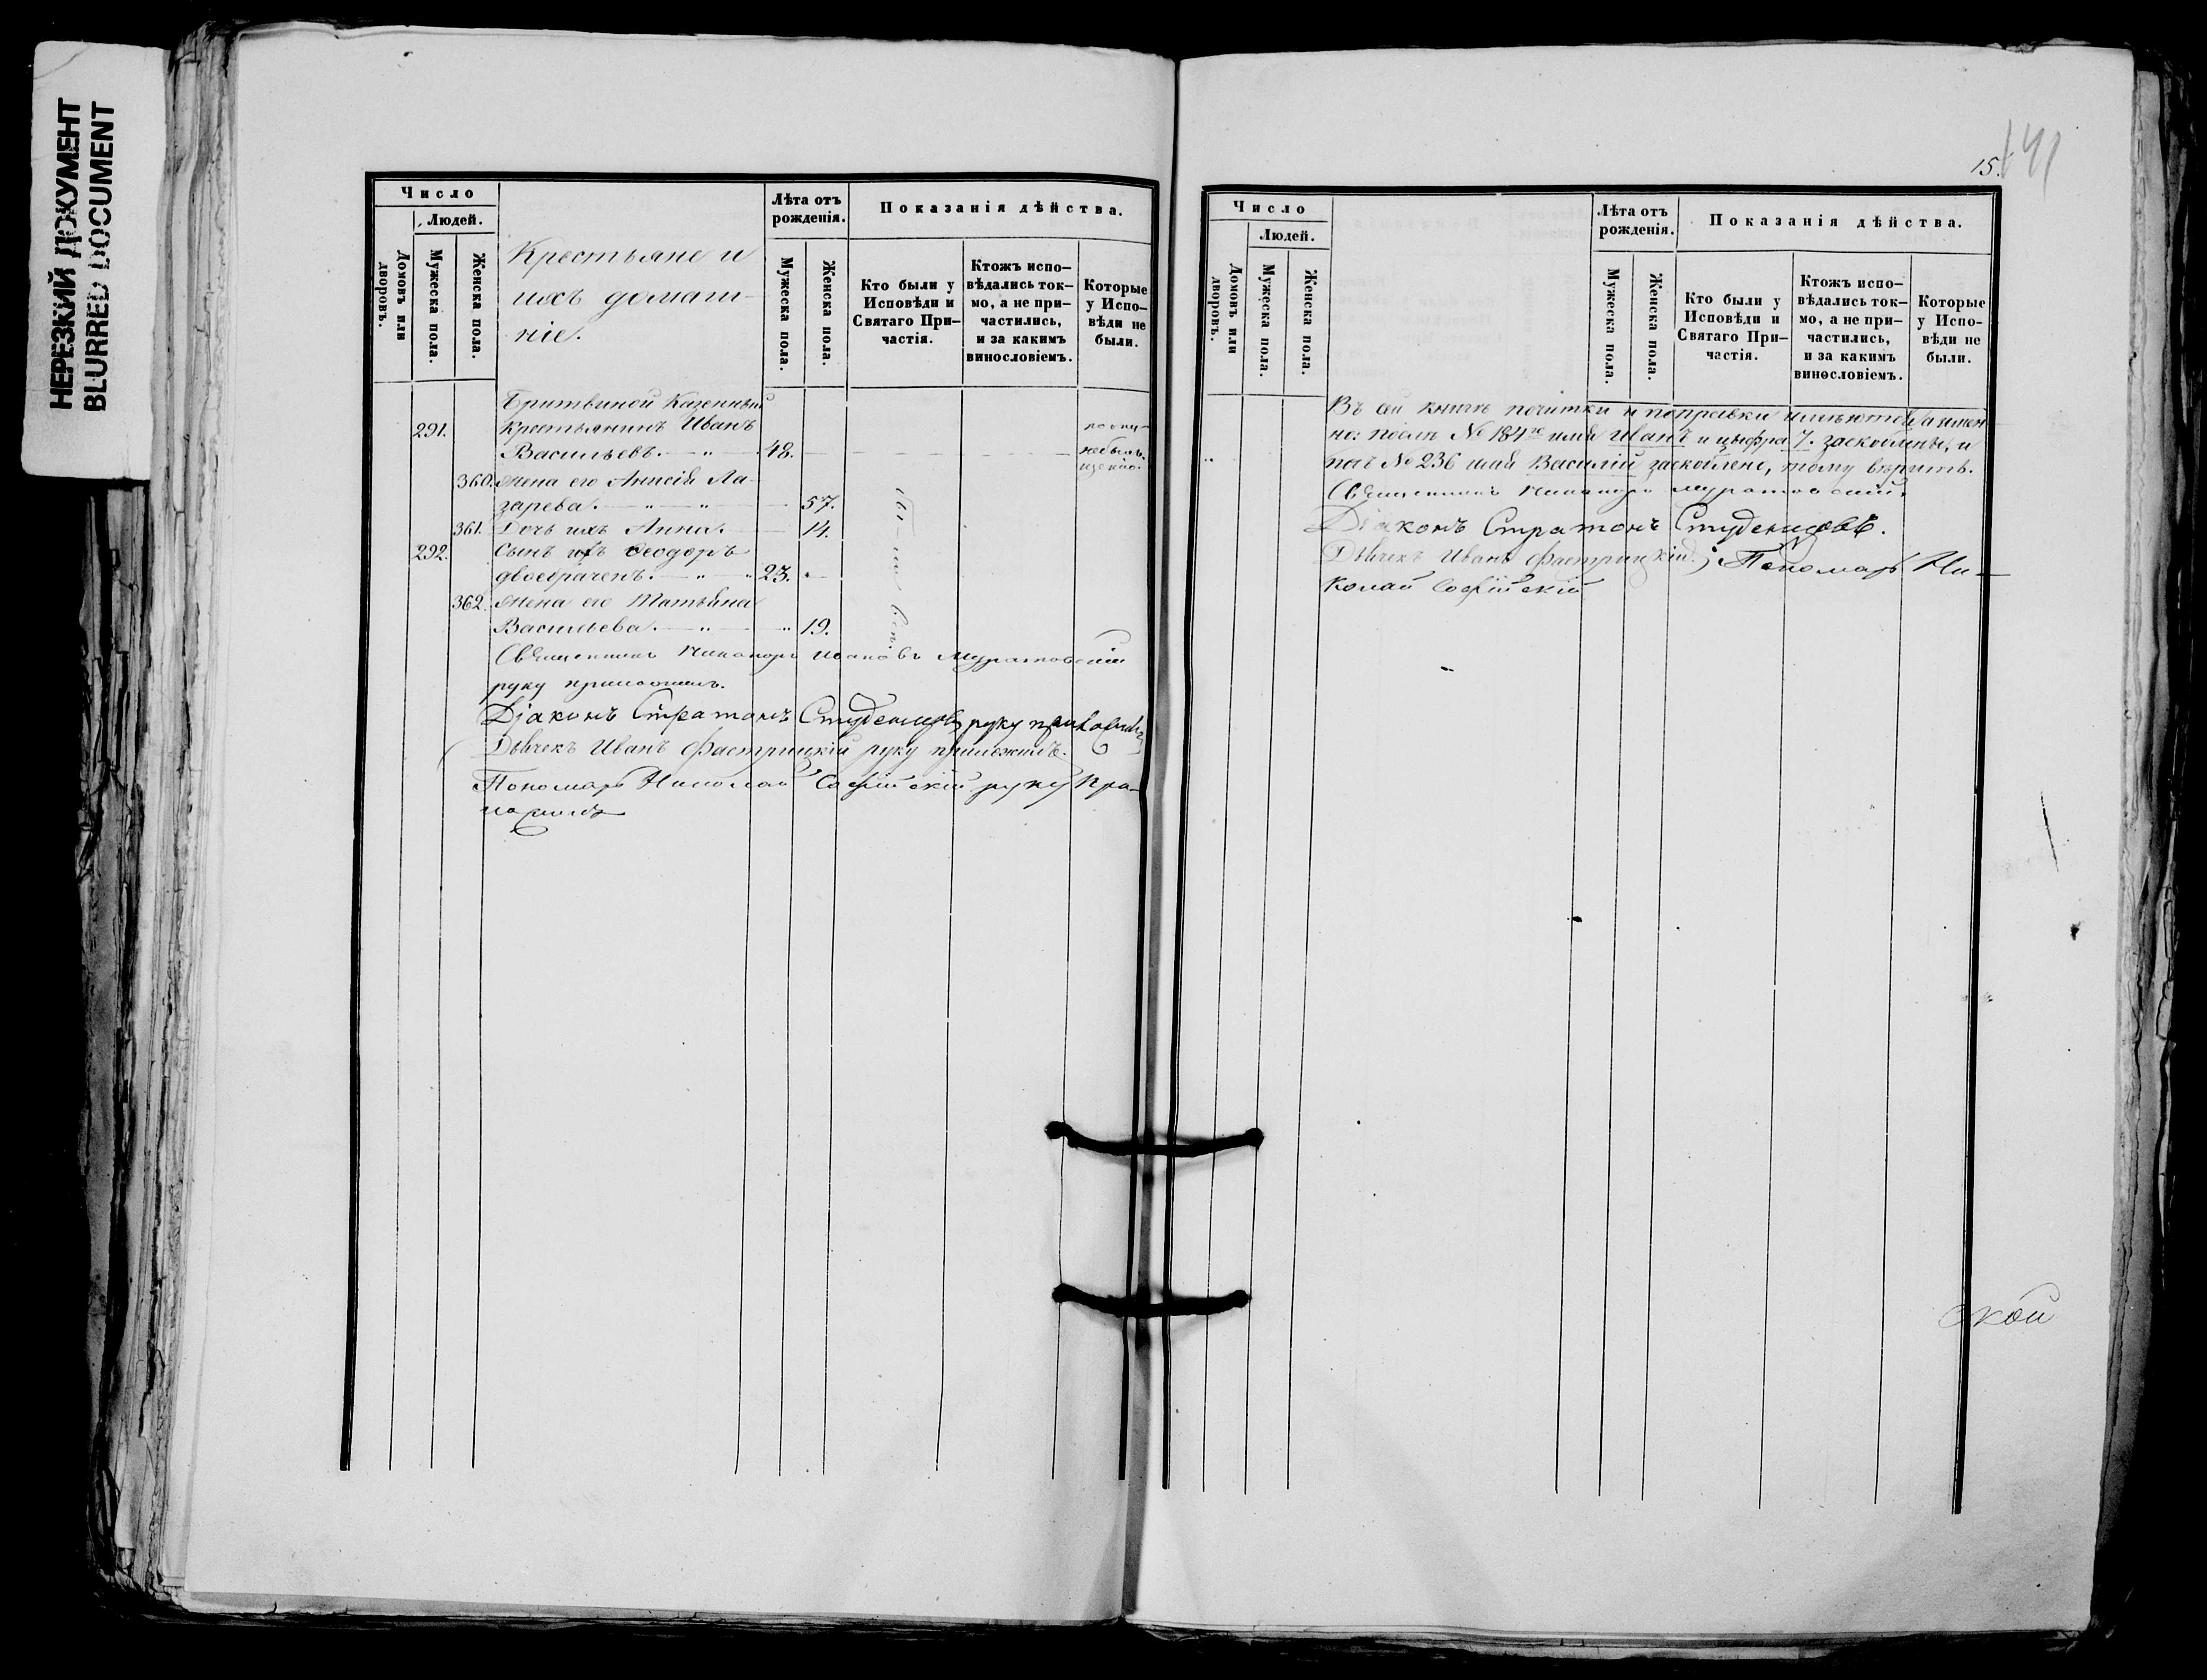 НЕРЕЗКИЙ ДОКУМЕНТ
BLURRED DOCUMENT
Число
Людей.
Домовъ или дворовъ.
Мужеска пола.
Женска пола.
Крестьяне и
ихъ домаш-
ніе.
Лѣта отъ
рожденія.
Мужеска пола.
Женска пола.
Показанія дѣйства.
Кто были у
Исповѣди и
Святаго При-
частія.
Ктожъ испо-
вѣдались ток-
мо, а не при-
частились,
и за какимъ
винословіемъ.
Которые
у Испо-
вѣди не
были.
Бритвиной Казенный
291. Крестьянинъ Иванъ по опу-
Васильевъ. 48.
щенію.
360. Жена его Анисія Ла-
зарева. 57.
361. Дочь ихъ Анна. 14.
292. Сынъ ихъ Ѳеодоръ
двоебраченъ. 23.
362. Жена его Татьяна
Васильева. 19.
Священникъ Никаноръ Ивановъ Муратовскій
руку приложилъ.
Діаконъ Стратонъ Студенцовъ руку приложилъ
Дьячекъ Иванъ Фастрицкій руку приложилъ.
Пономарь Николай Софійскій руку при-
ложилъ
15.
141
Число
Людей.
Домовъ или дворовъ.
Мужеска пола.
Женска пола.
Лѣта отъ
рожденія.
Мужеска пола.
Женска пола.
Показанія дѣйства.
Кто были у
Исповѣди и
Святаго При-
частія.
Ктожъ испо-
вѣдались ток-
мо, а не при-
частились,
и за какимъ
винословіемъ.
Которые
у Испо-
вѣди не
были.
Въ сей книгѣ почитки и поправки имѣются, а имен
но: послѣ № 184го имя Иванъ и цыфра 7. заскоблены, и
подъ № 236 имя Василій заскоблено, тому вѣрить.
Священникъ Никаноръ Муратовскій.
Діаконъ Стратонъ Студенцовъ.
Дьячекъ Иванъ Фастрицкій; Пономарь Ни-
колай Софійскій
ской